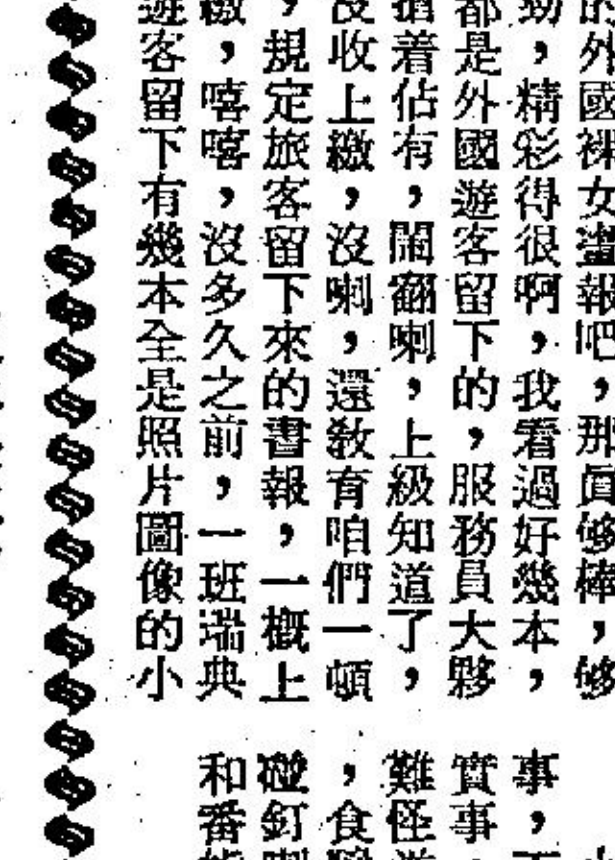 的外國裸女畫報吧，那眞够棒，够
勁，精彩得很啊，我看過好幾本，
都是外國遊客留下的，服務員大夥
搶着佔有，鬧翻喇，上級知道了，
沒收上繳，沒喇，還教育咱們一頓
，規定旅客留下來的書報，一概上
繳，嘻嘻，沒多久之前，一班瑞典
遊客留下有幾本全是照片圖像的小
事，
實事，
難怪
，食
碰釘
和番